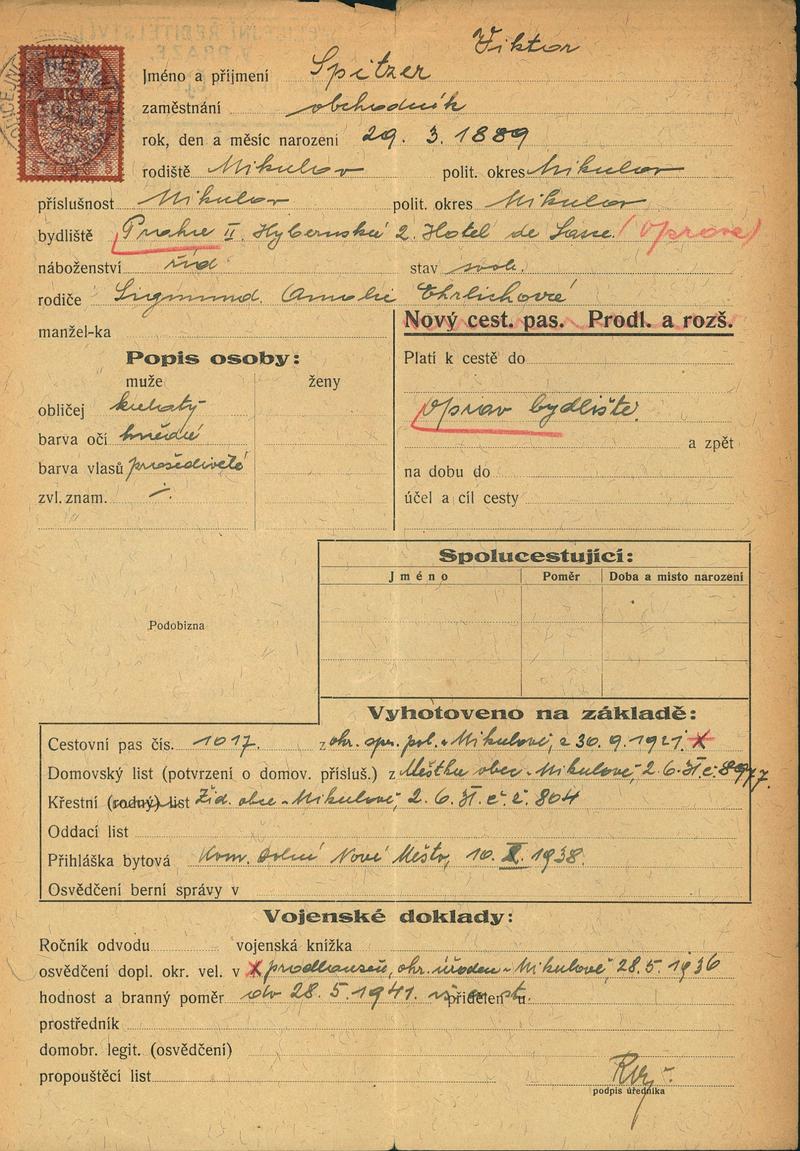 Viktor
Jméno a příjmení Spitzer
zaměstnání obchodník
rok, den a měsíc narození 29. 3. 1889
rodiště Mikulov polit. okres Mikulov
příslušnost Mikulov polit. okres Mikulov
bydliště Praha II. Hybernská 2. Hotel de Saxe. (oprava)
náboženství žid. stav svob.
rodiče Sigmund. Amalie Ehrlichová
Nový cest. pas. Prodl. a rozš.
manžel-ka
Popis osoby:
Platí k cestě do
muže ženy
obličej kulatý
oprav bydliště.
barva očí hnědé
a zpět
barva vlasů prošedivělé
na dobu do
zvl. znam. ÷
účel a cíl cesty
Spolucestující:
Jméno Poměr Doba a místo narození
Podobizna
Vyhotoveno na základě:
Cestovní pas čís. 1017. z okr. spr. pol. Mikulově, z 30. 9. 1921. X
Domovský list (potvrzení o domov. přísluš.) z obec Mikulově, 2. 6.
Křestní (rodný) list Žid. obce Mikulově, 2. 6. č. 804
Oddací list
Přihláška bytová Kom. Dolní Nové Město, 10. X. 1938.
Osvědčení berní správy v
Vojenské doklady:
Ročník odvodu vojenská knížka
osvědčení dopl. okr. vel. v X okr. Mikulově, 28. 5. 1936
hodnost a branný poměr do 28. 5. 1941. přidělen u
prostředník
domobr. legit. (osvědčení)
propouštěcí list
podpis úředníka